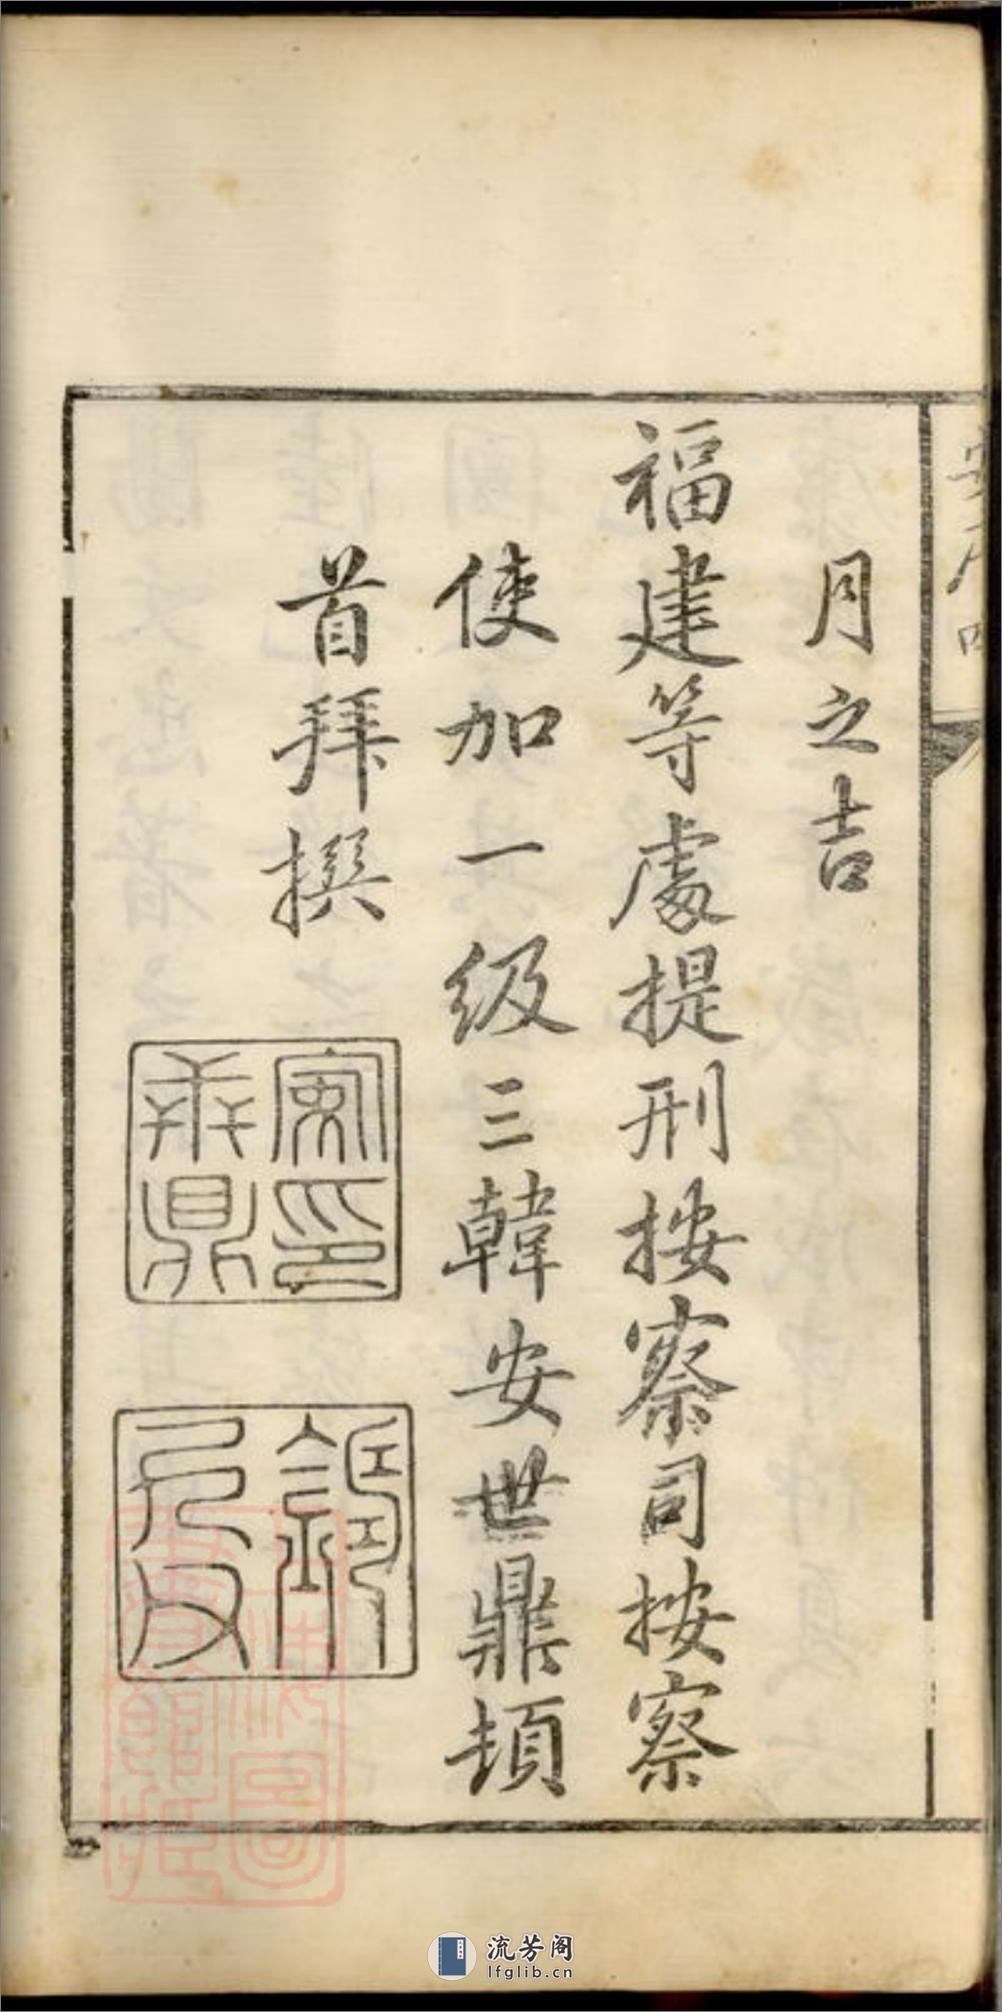 月之吉
福建等處提刑按察司按察
使加一級三韓安世鼎頓
首拜撰
流芳阁
lfglib.cn